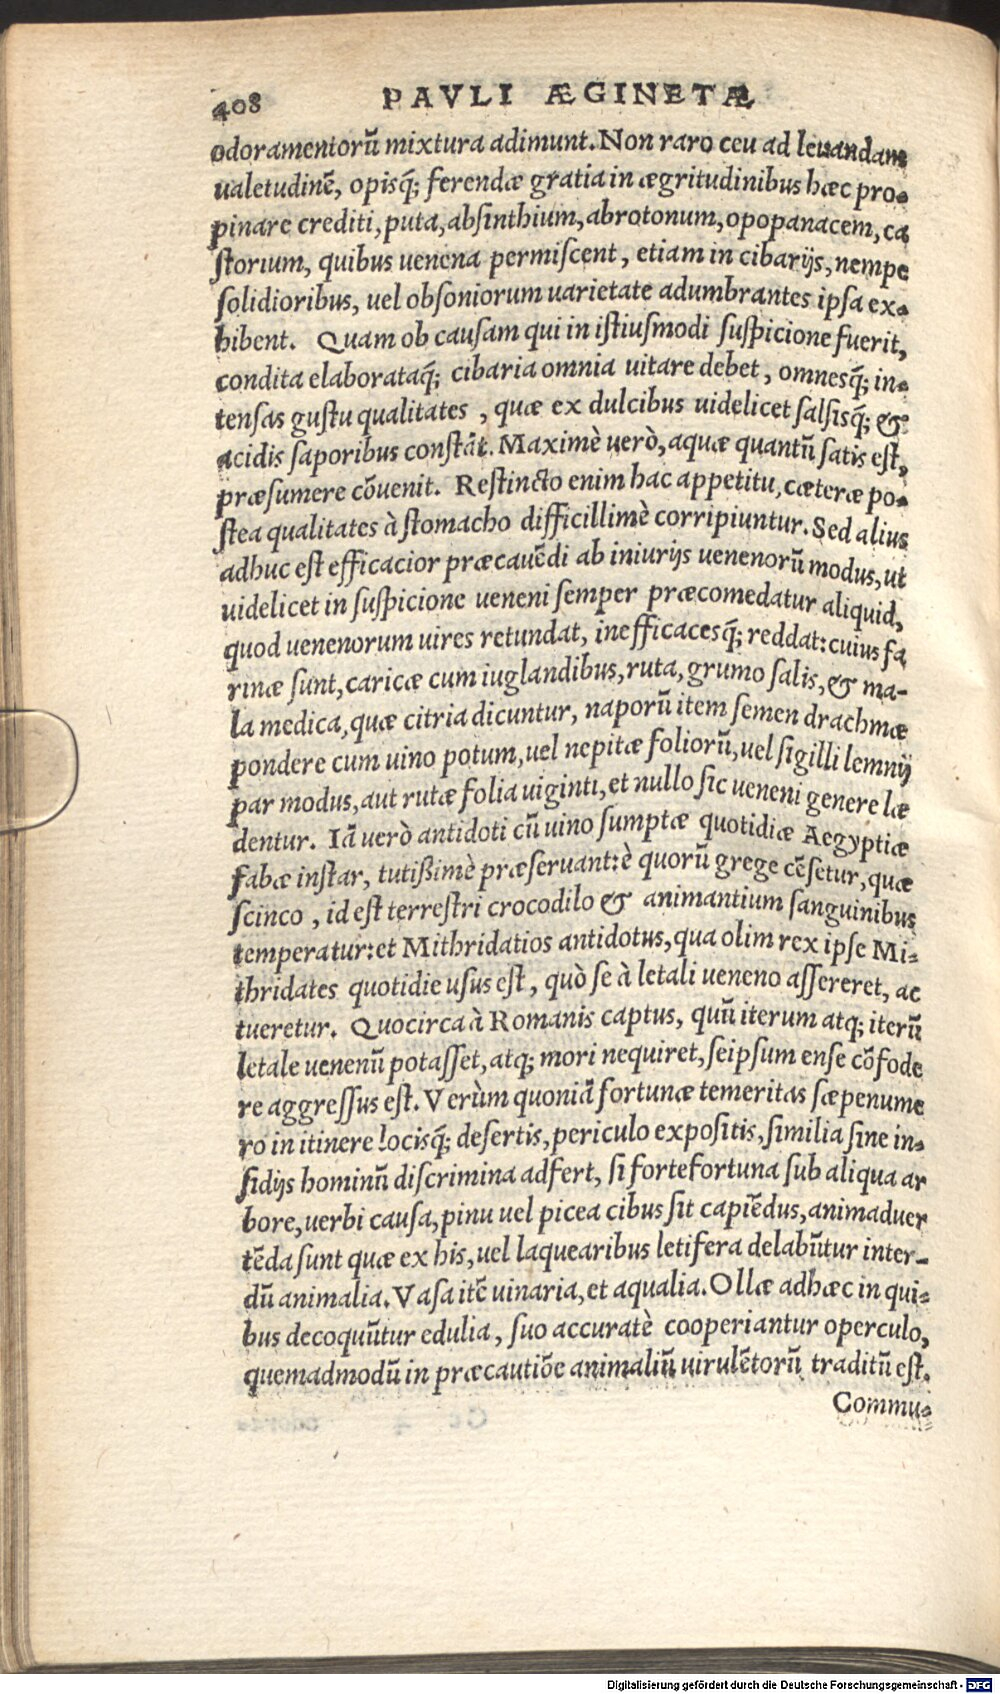 408 PAVLI ÆGINETÆ
odoramentorũ mixtura adimunt. Non raro ceu ad leuandam
ualetudinẽ, opisq́; ferendæ gratia in ægritudinibus hæc pro-
pinare crediti, puta, absinthium, abrotonum, opopanacem, ca
storium, quibus uenena permiscent, etiam in cibarijs, nempe
solidioribus, uel obsoniorum uarietate adumbrantes ipsa ex-
hibent. Quam ob causam qui in istiusmodi suspicione fuerit,
condita elaborataq́; cibaria omnia uitare debet, omnesq́; in-
tensas gustu qualitates, quæ ex dulcibus uidelicet salsisq́; &
acidis saporibus constãt. Maximè uerò, aquæ quantũ satis est,
præsumere cõuenit. Restincto enim hac appetitu, cæteræ po-
stea qualitates à stomacho difficillimè corripiuntur. Sed alius
adhuc est efficacior præcauẽdi ab iniurijs uenenorũ modus, ut
uidelicet in suspicione ueneni semper præcomedatur aliquid,
quod uenenorum uires retundat, inefficacesq́; reddat: cuius fa
rinæ sunt, caricæ cum iuglandibus, ruta, grumo salis, & ma-
la medica, quæ citria dicuntur, naporũ item semen drachmæ
pondere cum uino potum, uel nepitæ foliorũ, uel sigilli lemnij
par modus, aut rutæ folia uiginti, et nullo sic ueneni genere læ
dentur. Iã uerò antidoti cũ uino sumptæ quotidiæ Aegyptiæ
fabæ instar, tutißimè præseruant: è quorũ grege cẽsetur, quæ
scinco, id est terrestri crocodilo & animantium sanguinibus
temperatur: et Mithridatios antidotus, qua olim rex ipse Mi-
thridates quotidie usus est, quò se à letali ueneno assereret, ac
tueretur. Quocirca à Romanis captus, quũ iterum atq; iterũ
letale uenenũ potasset, atq; mori nequiret, seipsum ense cõfode
re aggressus est. Verùm quoniã fortunæ temeritas sæpenume
ro in itinere locisq́; desertis, periculo expositis, similia sine in-
sidijs hominũ discrimina adfert, si fortefortuna sub aliqua ar
bore, uerbi causa, pinu uel picea cibus sit capiẽdus, animaduer
tẽda sunt quæ ex his, uel laquearibus letifera delabũtur inter-
dũ animalia. Vasa itẽ uinaria, et aqualia. Ollæ adhæc in qui-
bus decoquũtur edulia, suo accuratè cooperiantur operculo,
quemadmodũ in præcautiõe animaliũ uirulẽtorũ traditũ est.
Commu-
Digitalisierung gefördert durch die Deutsche Forschungsgemeinschaft - DFG